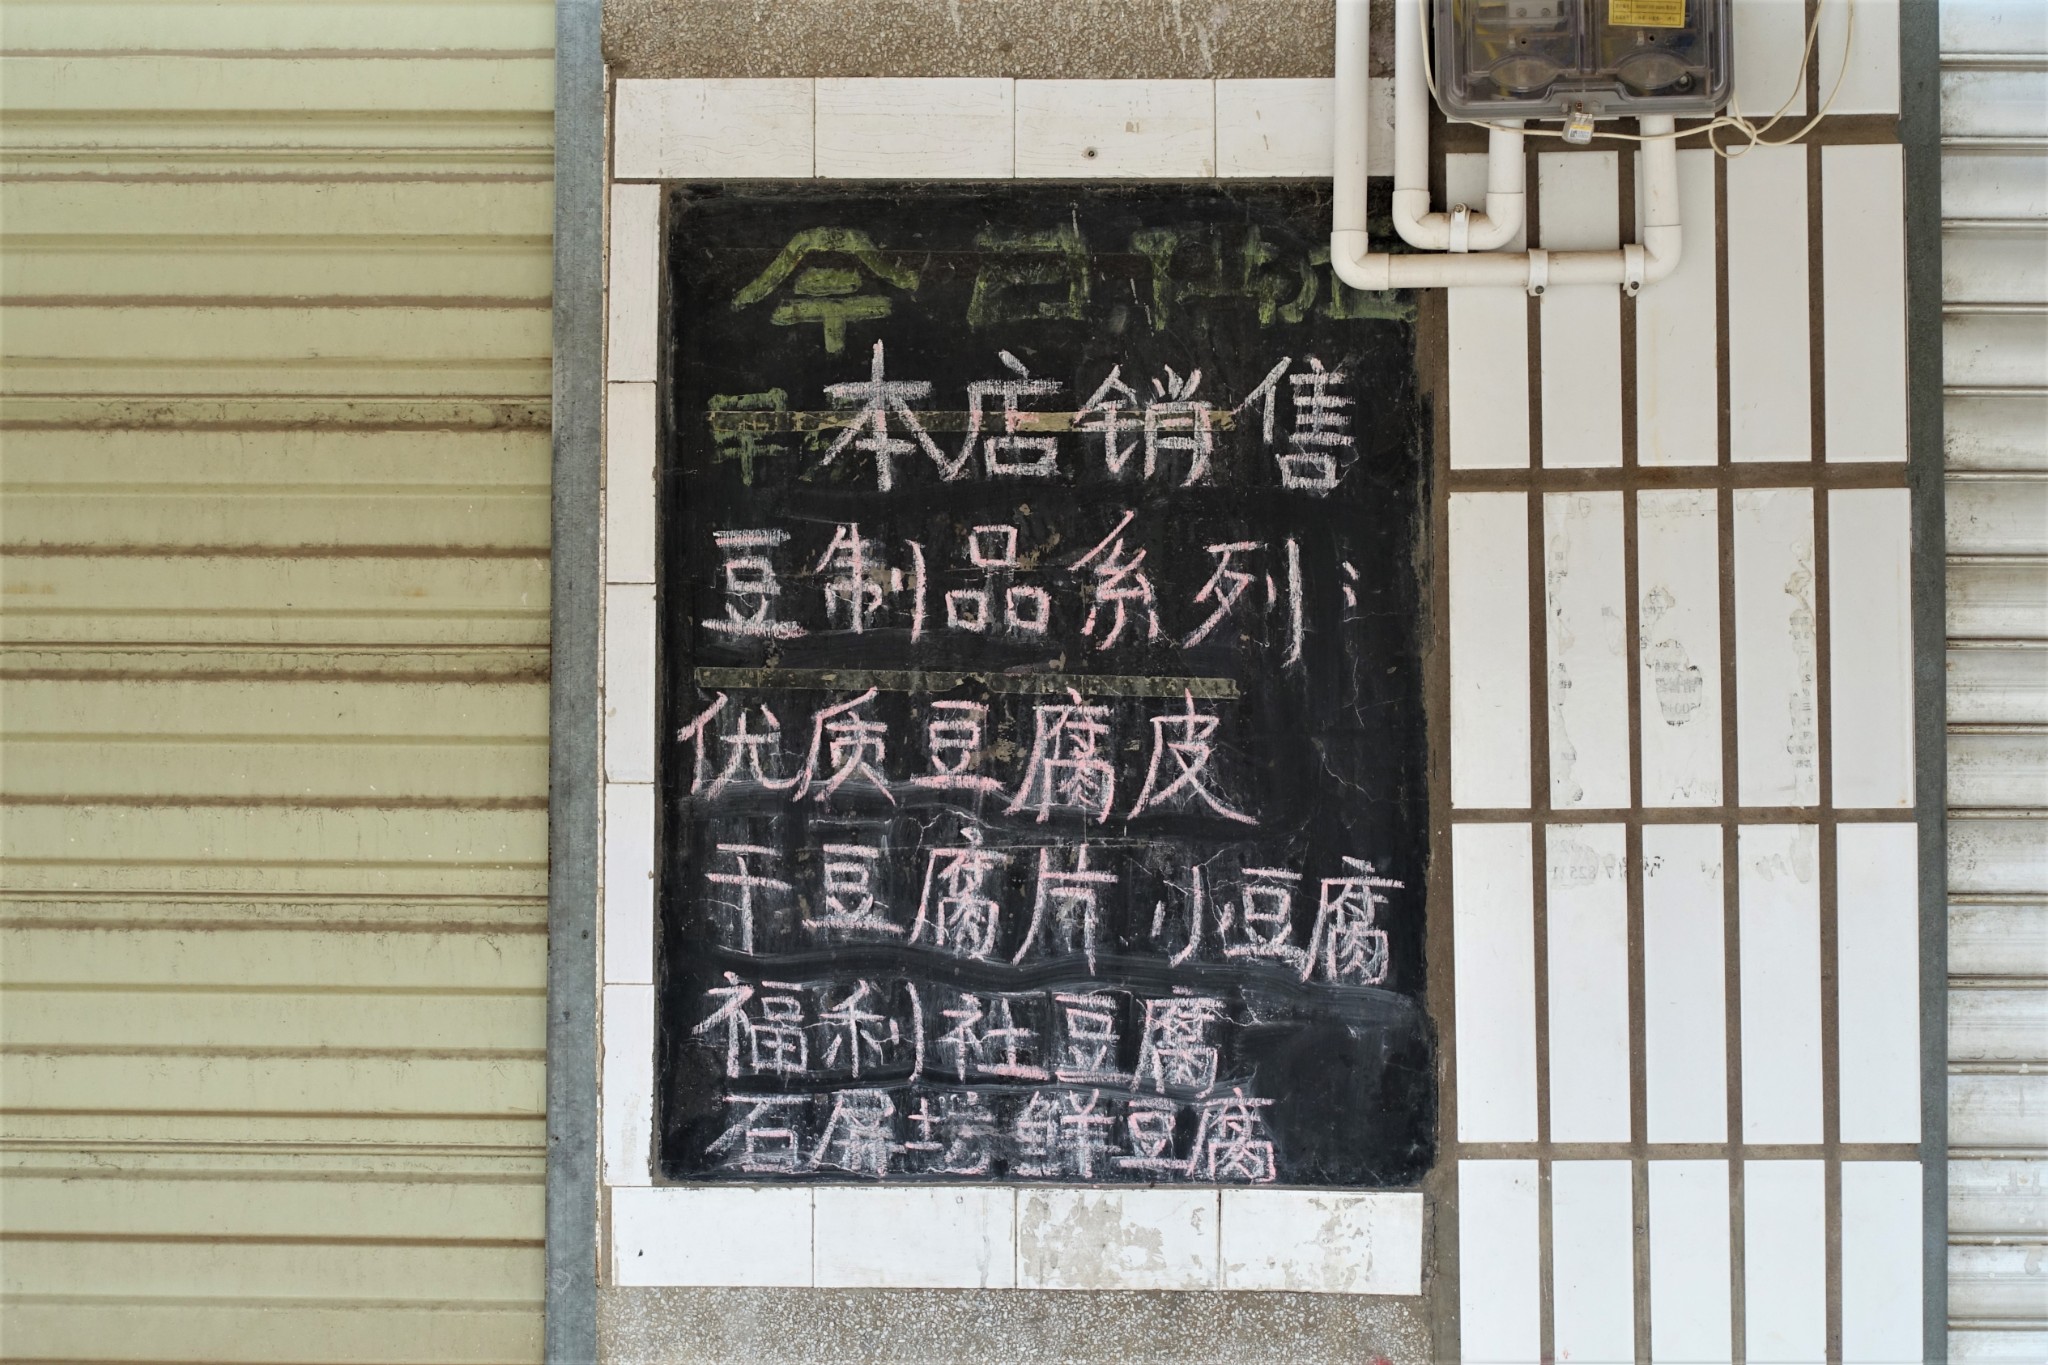 今日
早
本店销售
豆制品系列：
优质豆腐皮
干豆腐片 小豆腐
福利社豆腐
石屏坊鲜豆腐